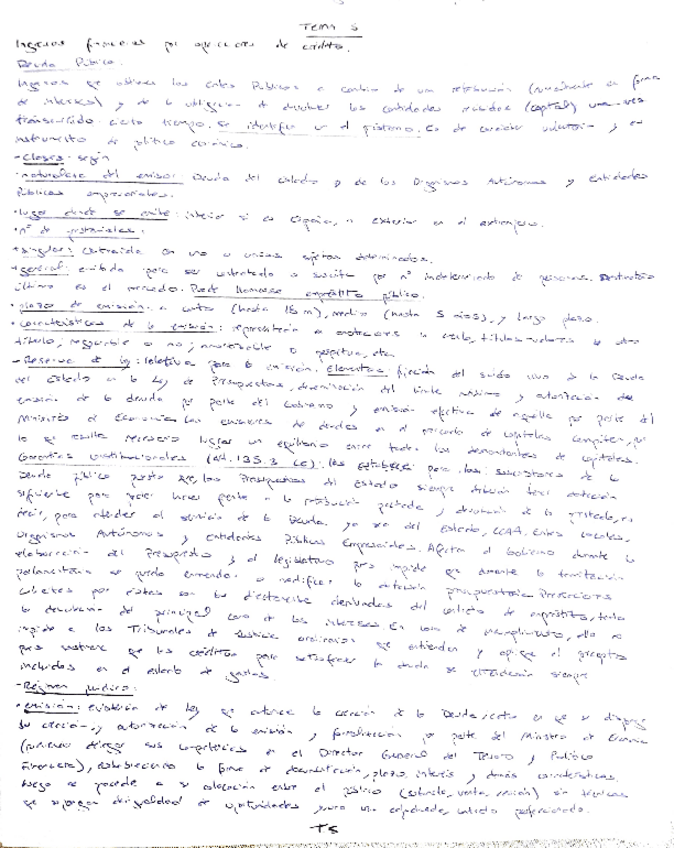 Tema 5
Ingresos financieros por operaciones de crédito.
Deuda Pública.
Ingresos que obtienen los Entes Públicos a cambio de una retribución (normalmente en forma
de intereses) y de la obligación de devolver las cantidades (capital) una vez
transcurrido cierto tiempo. Se identifica con el préstamo. Es de carácter voluntario y es
instrumento de política económica.
- Clases: según
· naturaleza del emisor: Deuda del Estado o de los Organismos Autónomos y entidades
Públicas empresariales.
· lugar donde se emite: interior si es España, o exterior en el extranjero.
· nº de prestamistas:
+ singular: contraída con uno o varios sujetos determinados.
+ general: emitida para ser contratada o suscrita por nº indeterminado de personas. Destinatario
último es el mercado. Puede llamarse empréstito público.
· plazo de emisión: a corto (hasta 18 m), medio (hasta 5 años), y largo plazo.
· características de la emisión: representación a anotaciones en cuenta, títulos-valores u otro
título; negociable o no; amortizable o perpetua, etc.
- Reserva de ley: relativa para la emisión. Elementos: fijación del saldo vivo de la Deuda
del Estado en la Ley de Presupuestos, determinación del límite máximo y autorización de
emisión de la deuda por parte del Gobierno y emisión efectiva de aquella por parte del
Ministerio de Economía. Los emisores de deudas en el mercado de capitales compiten, por
lo que resulta necesario lograr un equilibrio entre todos los demandantes de capitales.
Garantías institucionales (Art. 135.3 CE): las establecidas para los suscriptores de la
Deuda Pública puesto que, los Presupuestos del Estado siempre deberán tener dotación
suficiente para poder hacer frente a la retribución pactada y devolución de lo prestado, es
decir, para atender al servicio de la Deuda, ya sea del Estado, CCAA, Entes Locales,
Organismos Autónomos y entidades Públicas Empresariales. Afecta al Gobierno durante la
elaboración del Presupuesto y al legislativo pues impide que durante la tramitación
parlamentaria se pueda enmendar o modificar la dotación presupuestaria. Pretensiones
cubiertas por éstas son las directamente derivadas del contrato de empréstito, tanto
la devolución del principal como de los intereses. En caso de incumplimiento, ello no
impide a los Tribunales de Justicia ordinarios que entiendan y aplique el precepto
pues sostiene que los créditos para satisfacer la deuda se entenderán siempre
incluidos en el estado de gastos.
- Régimen jurídico:
· emisión: existencia de Ley que autorice la creación de la Deuda, en que se disponga
su creación, y autorización de la emisión y formalización por parte del Ministro de Economía
(pudiendo delegar sus competencias en el Director General del Tesoro y Política
Financiera), estableciendo la forma de documentación, plazo, interés y demás características.
Luego se procede a su colocación entre el público (subasta, venta, cesión) sin técnicas
que supongan desigualdad de oportunidades y una vez colocada, contrato perfeccionado.
T5